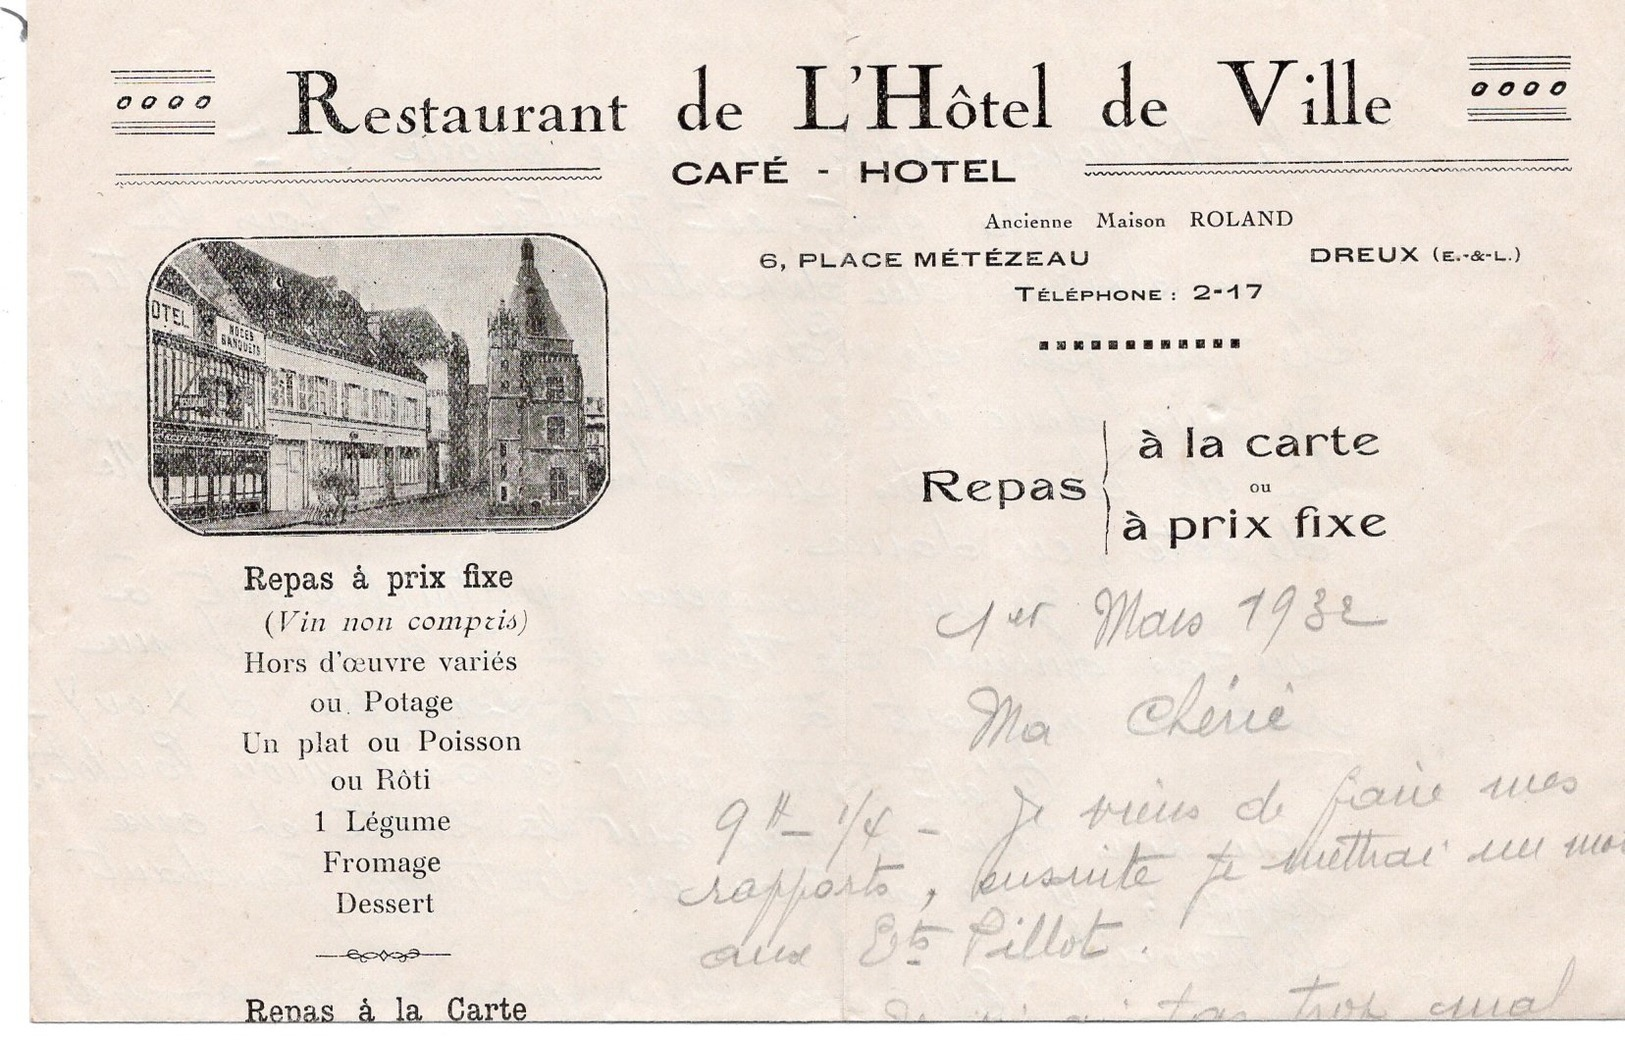 Restaurant de L'Hôtel de Ville
CAFÉ - HOTEL
Ancienne Maison ROLAND
6, PLACE MÉTÉZEAU DREUX (E.-&-L.)
TÉLÉPHONE : 2-17
OTEL
NOCES
BANQUETS
Repas à la carte
ou
à prix fixe
Repas à prix fixe
(Vin non compris)
Hors d'œuvre variés
ou Potage
Un plat ou Poisson
ou Rôti
1 Légume
Fromage
Dessert
Repas à la Carte
1er Mars 1932
Ma Chérie
9H - 1/4 - Je viens de faire mes
rapports, ensuite je mettrai un mot
aux Ets Pillot.
pas trop mal